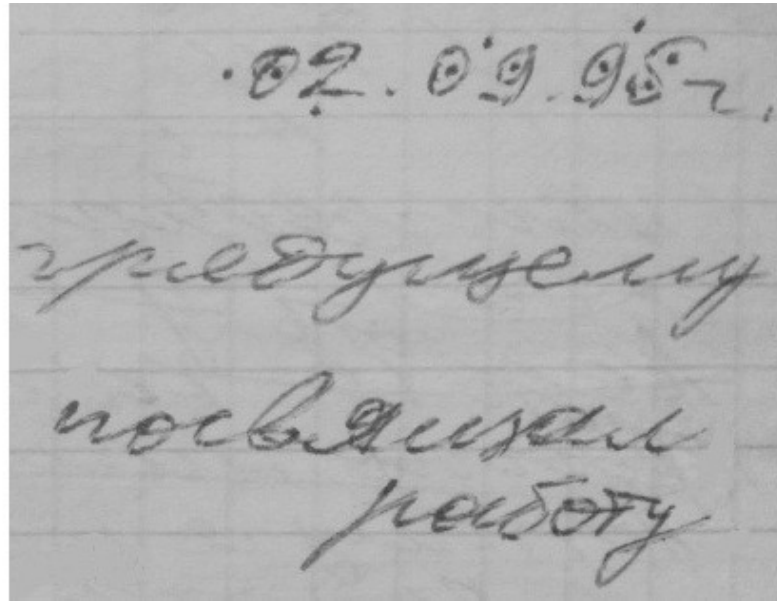 02.09.95г.
грядущему
посвящал
работу